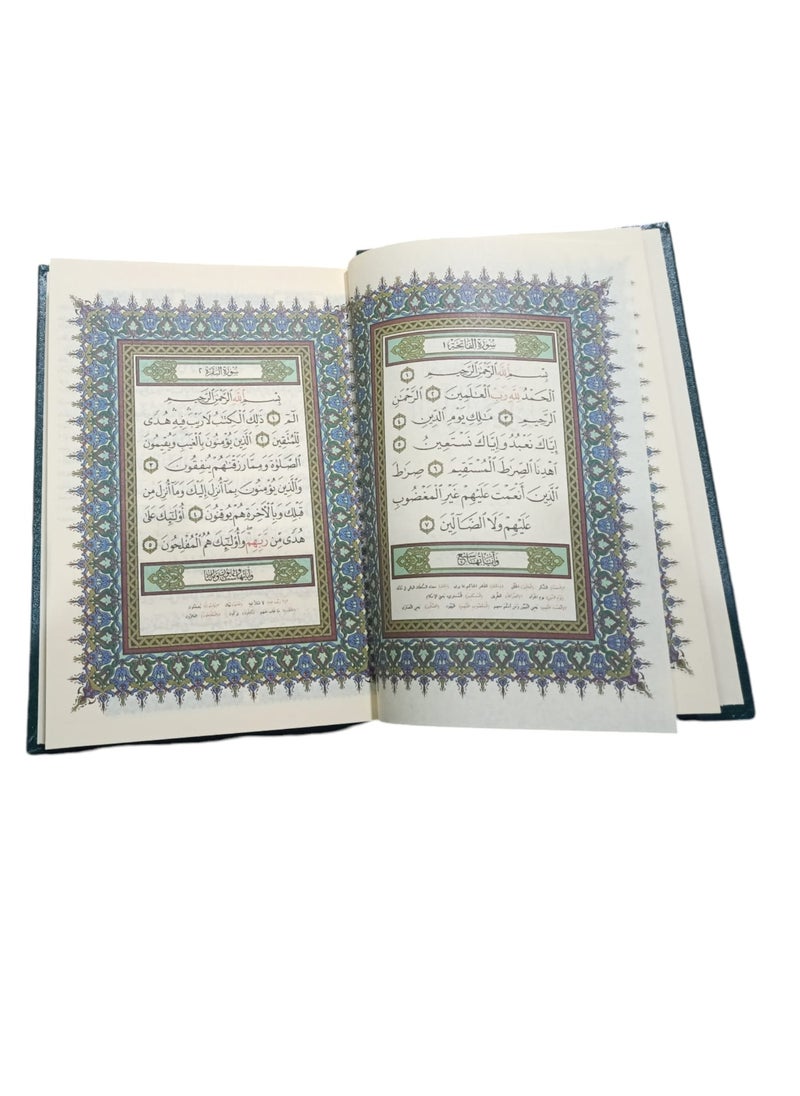 سورة الفاتحة ١
بِسْمِ ٱللَّهِ ٱلرَّحْمَٰنِ ٱلرَّحِيمِ ١
ٱلْحَمْدُ لِلَّهِ رَبِّ ٱلْعَٰلَمِينَ ٢ ٱلرَّحْمَٰنِ
ٱلرَّحِيمِ ٣ مَٰلِكِ يَوْمِ ٱلدِّينِ ٤
إِيَّاكَ نَعْبُدُ وَإِيَّاكَ نَسْتَعِينُ ٥
ٱهْدِنَا ٱلصِّرَٰطَ ٱلْمُسْتَقِيمَ ٦ صِرَٰطَ
ٱلَّذِينَ أَنْعَمْتَ عَلَيْهِمْ غَيْرِ ٱلْمَغْضُوبِ
عَلَيْهِمْ وَلَا ٱلضَّآلِّينَ ٧
وآياتها سبع
سورة البقرة ٢
بِسْمِ ٱللَّهِ ٱلرَّحْمَٰنِ ٱلرَّحِيمِ
الٓمٓ ١ ذَٰلِكَ ٱلْكِتَٰبُ لَا رَيْبَ فِيهِ هُدًى
لِّلْمُتَّقِينَ ٢ ٱلَّذِينَ يُؤْمِنُونَ بِٱلْغَيْبِ وَيُقِيمُونَ
ٱلصَّلَوٰةَ وَمِمَّا رَزَقْنَٰهُمْ يُنفِقُونَ ٣
وَٱلَّذِينَ يُؤْمِنُونَ بِمَآ أُنزِلَ إِلَيْكَ وَمَآ أُنزِلَ مِن
قَبْلِكَ وَبِٱلْءَاخِرَةِ هُمْ يُوقِنُونَ ٤ أُو۟لَٰٓئِكَ عَلَىٰ
هُدًى مِّن رَّبِّهِمْ وَأُو۟لَٰٓئِكَ هُمُ ٱلْمُفْلِحُونَ ٥